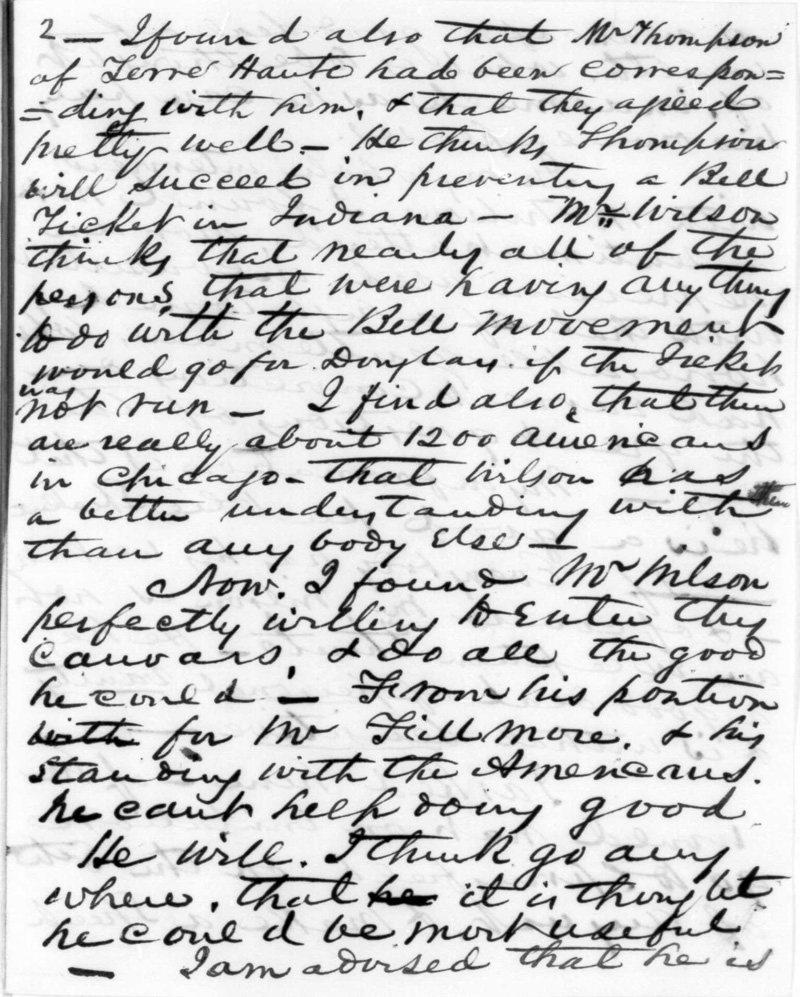 2 — I found also that Mr Thompson
of Terre Haute had been correspon=
=ding with him, & that they agreed
pretty well — He thinks Thompson
will succeed in preventing a Bell
Ticket in Indiana — Mr Wilson
thinks that nearly all of the
persons, that were having any thing
to do with the Bell movement
would go for Douglass if the Ticket
was
not run — I find also, that there
are really about 1200 Americans
in Chicago — that Wilson has
a better understanding with them
than any body else —
Now. I found Mr Wilson
perfectly willing to enter this
canvass, & do all the good
he could — From his position
with for Mr Fillmore, & his
standing with the Americans.
he cant help doing good
He will. I think go any
where, that he it is thought
he could be most useful
— I am advised that he is